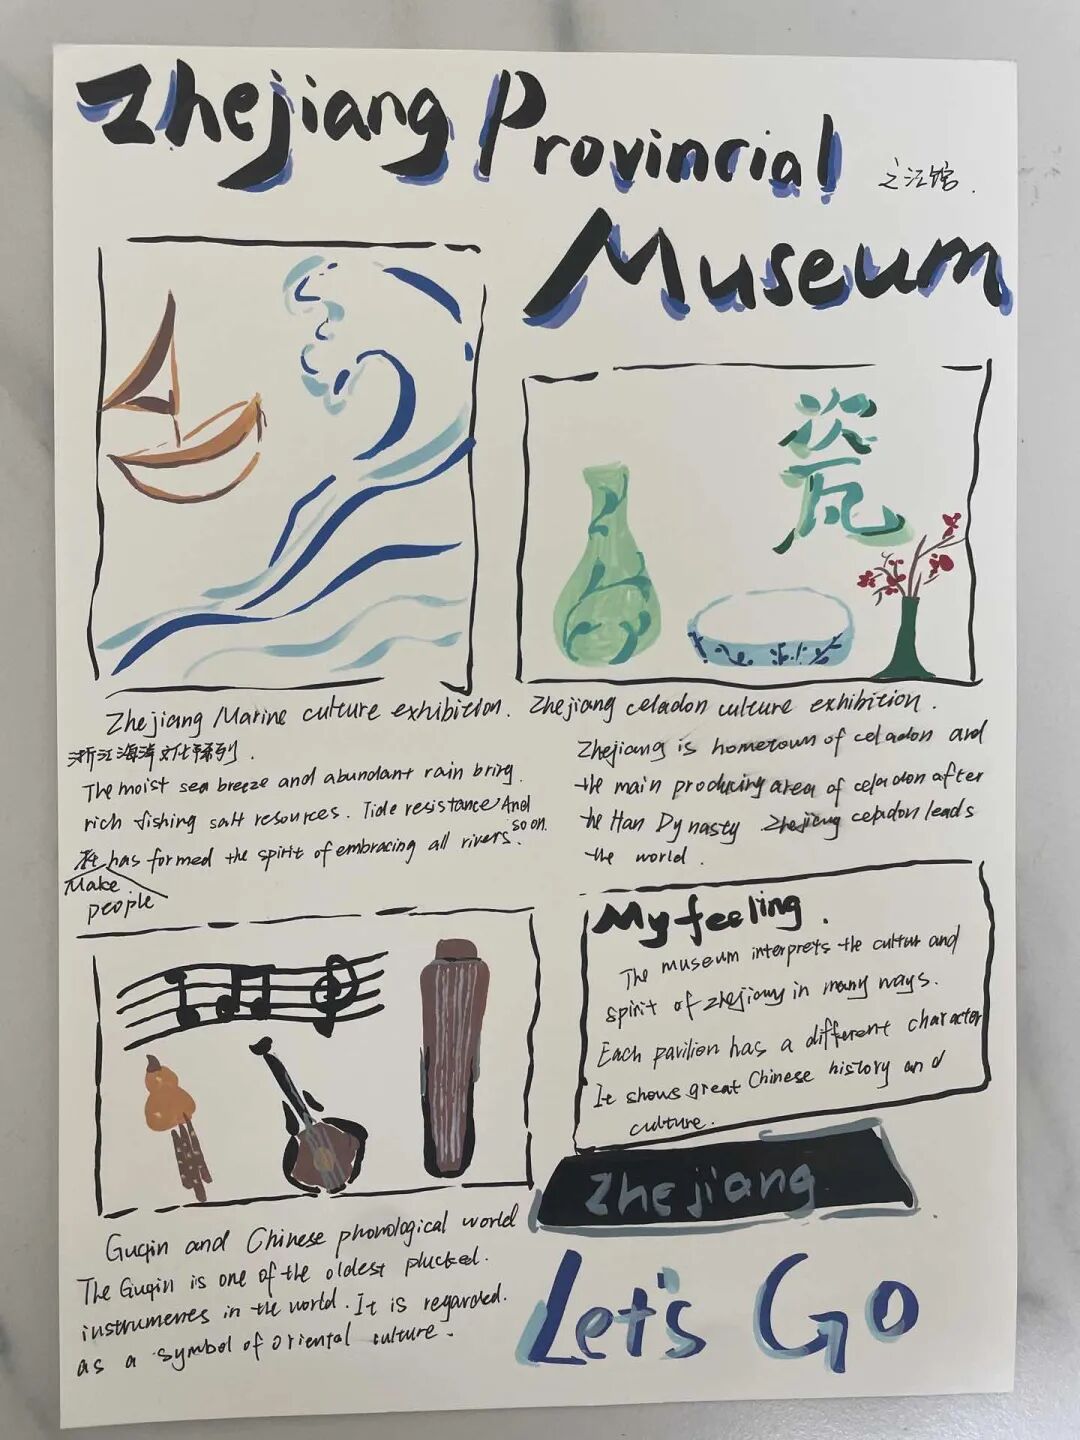 Zhejiang Provincial
之江馆.
Museum
瓷
Zhejiang Marine culture exhibition.
浙江海洋文化系列.
The moist sea breeze and abundant rain bring
rich fishing salt resources. Tide resistance And
so on.
has formed the spirit of embracing all rivers.
Make
people
Zhejiang celadon culture exhibition.
Zhejiang is hometown of celadon and
the main producing area of celadon after
the Han Dynasty Zhejiang celadon leads
the world.
My feeling.
The museum interprets the cultur and
spirit of zhejiang in many ways.
Each pavilion has a different character
It shows great Chinese history and
culture.
Guqin and Chinese phonological world
The Guqin is one of the oldest plucked.
instrumenes in the world. It is regarded.
as a symbol of oriental culture.
Zhejiang
Let's Go